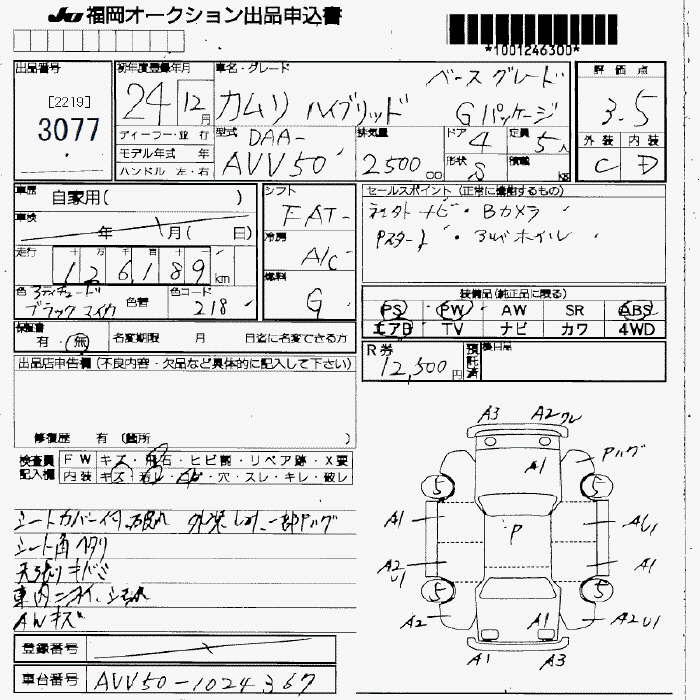 JU 福岡オークション出品申込書
*1001246300*
出品番号
[2219]
3077
初年度登録年月
24 12月
ディーラー・並行
モデル年式 年
ハンドル 左・右
車名・グレード
ベースグレード
カムリ ハイブリッド Gパッケージ
型式 DAA-
AVV50
排気量
2500 cc
ドア 4
形状 S
定員 5人
積載 kg
評価点
3.5
外装 内装
C D
車歴 自家用( )
車検
年 月( 日)
走行 十 万 千 百 十 一
126189 km
色
ブラックマイカ
色替
色コード
218
シフト
FAT
冷房
A/C
燃料
G
セールスポイント(正常に機能するもの)
ナビ・Bカメラ
Pスタート・アルミホイル
装備品(純正品に限る)
PS PW AW SR ABS
エアB TV ナビ カワ 4WD
保証書
有・無
名変期限 月 日迄に名変できる方
R券
12,500円
預託済
後日品
出品店申告欄(不良内容・欠品など具体的に記入して下さい)
修復歴 有(箇所 )
検査員記入欄
FW キズ・飛石・ヒビ割・リペア跡・X要
内装 キズ・汚レ・穴・スレ・キレ・破レ
シートカバー付
シート角ヘタリ
天張りキバミ
AWキズ
登録番号
車台番号 AVV50-1024367
A3 A2
A1
5 5
A1 P AU1
A2 U1 A1
5 5
A2 A1 A2U1
A1 A3